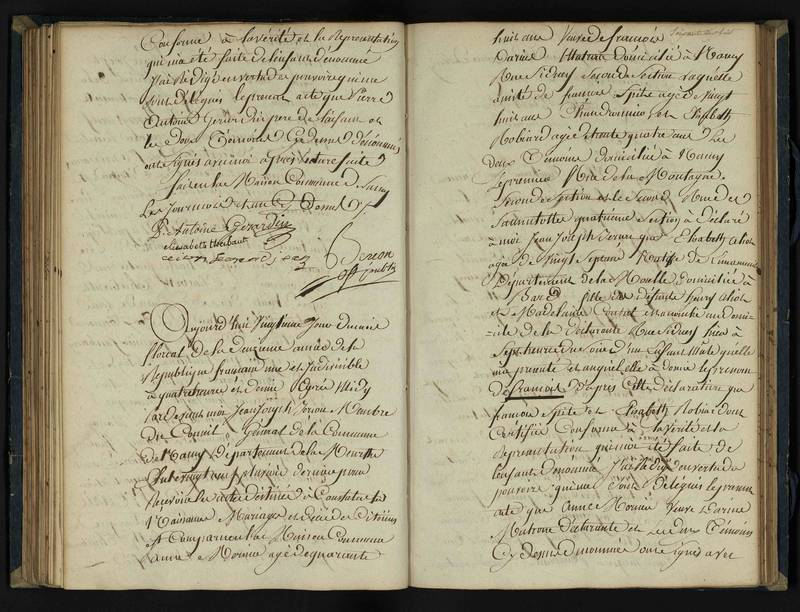 Conforme à la vérité et la Représentation
qui m'a été faite de l'enfant dénommé
J'ai Rédigé en vertu des pouvoirs qui me
sont délégués le présent acte que Pierre
Antoine Gerardin pere de l'enfant et
les deux Témoins Cy dessus dénommés
ont signés avec moi après lecture faite
fait en la Maison Commune de Nancy
Les Jour mois et an Cy Dessus
P. Antoine Gerardin
elisabeth thiebaut
Berion
off publ
Aujourd'hui Vingt une Jour du mois
floreal de la deuzieme année de la
Republique française une et Indivisible
à quatre heures et demie Après Midy
Pardevant moi Jean Joseph Berion Membre
Du Conseil General de la Commune
de Nancy département de la Meurthe
du vingt neuf pluviose dernier pour
Recevoir les actes destinés à Constater les
Naissances Mariages et Décès des Citoiens
Est Comparue en la Maison Commune
anne Morniu agé de quarante
huit ans Veuve de francois
Darine Matrone domiciliée à Nancy
Rue Sidney Seconde Section Laquelle
assisté de francois Spite agé de Vingt
huit ans et Elisabeth
Robiard agé de trente quatre ans Les
deux Témoins domiciliés à Nancy
le premier Rue de la Montagne
Seconde Section et le second Rue des
Sansculotte quatrieme Section à Déclaré
à moi Jean Joseph Berion que Elisabeth
agée de Vingt Sept ans Native de
Département de la Moselle Domiciliée à
fille de défunte henry
et Madelaine est accouchée au domi-
-cile de la déclarante Rue Sidney hier à
Sept heures du Soir d'un Enfant Mâle qu'elle
m'a presenté et auquel elle à donné le prenom
de francois D'apres Cette déclaration que
francois Spite et Elisabeth Robiar dont
Certifiée Conforme à la Vérité et la
Représentation qui m'a été faite de
l'enfant denommé J'ai Rédigé en vertu des
pouvoirs qui me sont délégués le present
acte que anne Morniu Veuve Darine
Matrone déclarante et les deux Témoins
Cy dessus denommés ont signés avec